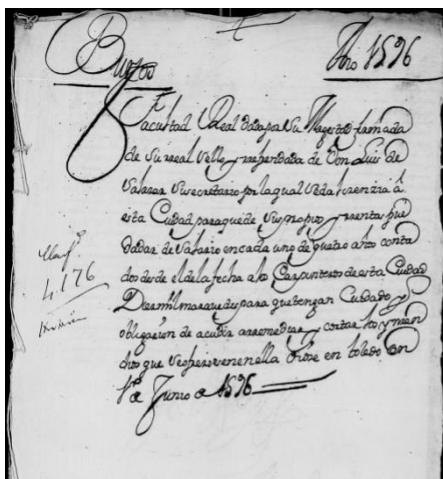 Burgos
Año 1596
Facultad Real dada pa Su Magestad firmada
de Su real Sello y refrendada de Don Luis de
Salazar Su secretario por la qual Se da lizenzia â
esta Ciudad para que de Sus propios y rentas pue
da dar de Salario en cada uno de quatro años conta
dos desde el de la fecha a los Carpinteros de esta Ciudad
Diez mil maravedis para que tengan Cuidado y
obligazion de acudir a rremediar y cortar los yncen
dios que Se ofreziesen en ella fhose en toledo en
1º de Junio de 1596
4176